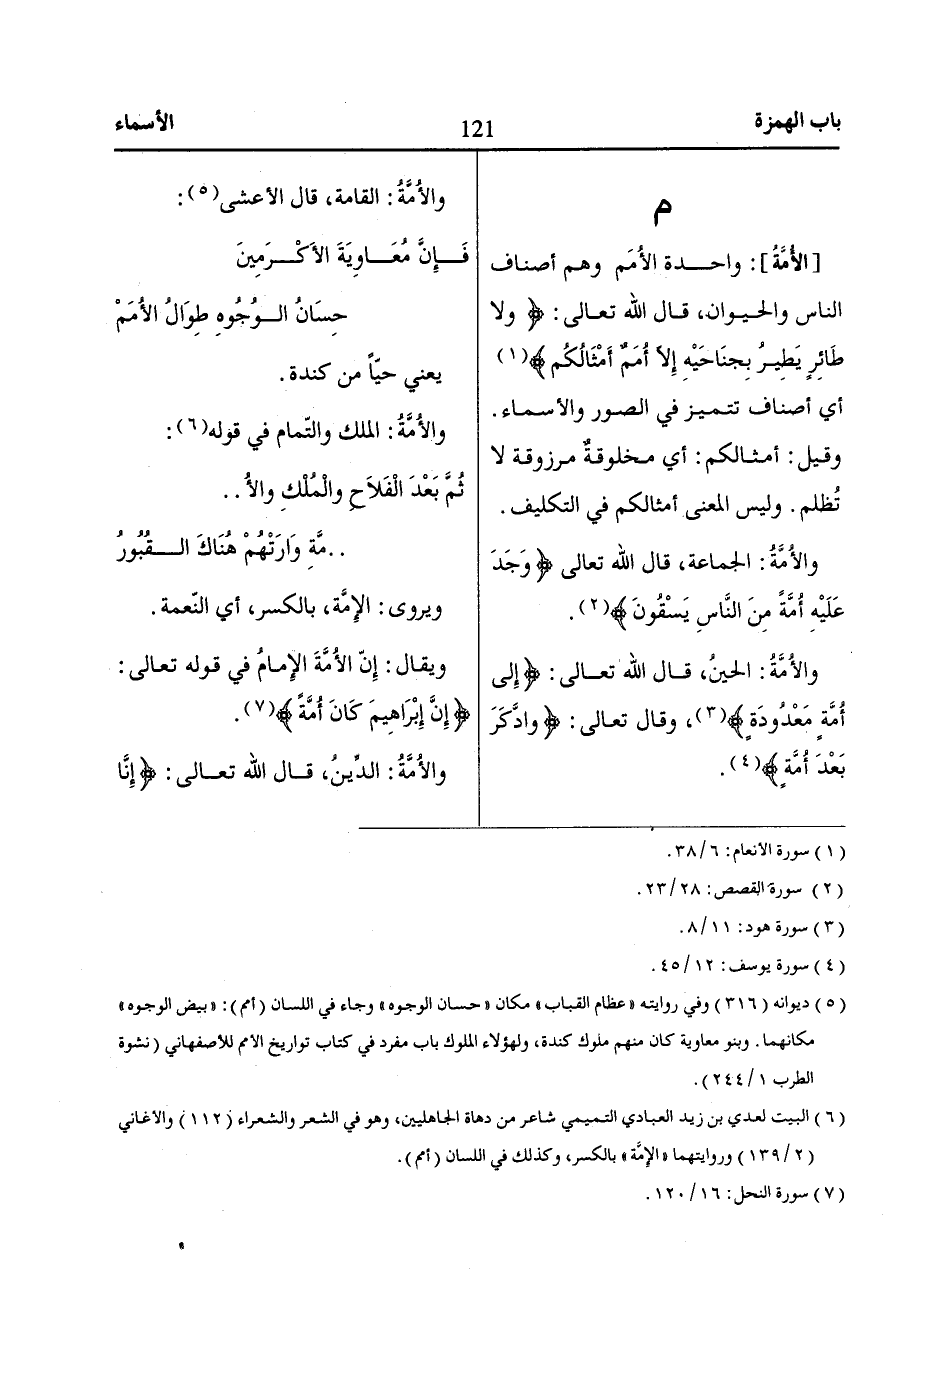 باب الهمزة
121
الأسماء
م
[الأُمَّةُ]: واحــدة الأُمَم وهـم أصناف
الناس والحـيـوان، قــال الله تعـالى: ﴿ ولا
طَائِرٍ يَطِيرُ بِجنَاحَيْهِ إِلاّ أُمَمٌ أَمْثَالُكُم ﴾(١)
أي أصناف تتميـز في الصور والأسمـاء.
وقيل: أمـثـالكم: أي مـخلوقةٌ مـرزوقة لا
تُظلم. وليس المعنى أمثالكم في التكليف.
والأُمَّةُ: الجماعة، قال الله تعالى ﴿ وَجَدَ
عَلَيْهِ أُمَّةً مِنَ النَّاسِ يَسْقُونَ ﴾(٢).
والأُمَّةُ: الحينُ، قــال الله تعــالى: ﴿ إِلى
أُمَّةٍ مَعْدُودَةٍ ﴾(٣)، وقال تعالى: ﴿ وادَّكَرَ
بَعْدَ أُمَّةٍ ﴾(٤).
والأُمَّةُ: القامة، قال الأعشى(٥):
فَــإِنَّ مُعَــاوِيَةَ الأَكْــرَمِينَ
حِسَانُ الــوُجُوهِ طِوَالُ الأُمَمْ
يعني حيّاً من كندة.
والأُمَّةُ: الملك والتّمام في قوله(٦):
ثُمَّ بَعْدَ الْفَلاَحِ والْمُلْكِ والأُ..
..مَّةِ وَارَتْهُمْ هُنَاكَ الــقُبُورُ
ويروى: الإِمَّة، بالكسر، أي النّعمة.
ويقال: إِنّ الأُمَّةَ الإِمامُ في قوله تعالى:
﴿ إِنَّ إِبْرَاهِيمَ كَانَ أُمَّةً ﴾(٧).
والأُمَّةُ: الدِّينُ، قــال الله تعــالى: ﴿ إِنَّا
(١) سورة الأنعام: ٣٨/٦.
(٢) سورة القصص: ٢٣/٢٨.
(٣) سورة هود: ٨/١١.
(٤) سورة يوسف: ٤٥/١٢.
(٥) ديوانه (٣١٦) وفي روايته «عظام القباب» مكان «حسان الوجوه» وجاء في اللسان (أمم): «بيض الوجوه»
مكانهما. وبنو معاوية كان منهم ملوك كندة، ولهؤلاء الملوك باب مفرد في كتاب تواريخ الأمم للأصفهاني (نشوة
الطرب ٢٤٤/١).
(٦) البيت لعدي بن زيد العبادي التميمي شاعر من دهاة الجاهليين، وهو في الشعر والشعراء (١١٢) والأغاني
(١٣٩/٢) وروايتهما «الإِمَّة» بالكسر، وكذلك في اللسان (أمم).
(٧) سورة النحل: ١٢٠/١٦.